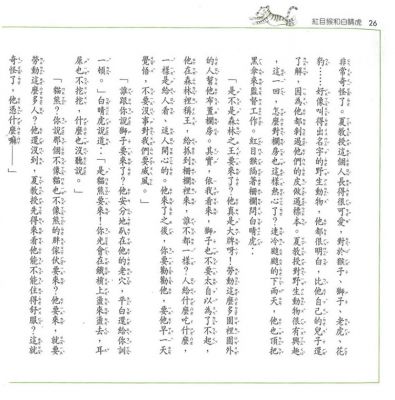 紅目猴和白睛虎 26
非常奇怪。夏教授這個人長得很可愛，對於猴子、獅子、老虎、花
豹……好像叫得出名字的野生動物，他都很明白，比他自己的兒子還
了解，因為他都剝過他們的皮做過標本。夏教授對野生動物很有興趣
，這一回，怎麼對欄房也這樣熱心了？連冷颼颼的下雨天，他也頂把
黑傘來監督工作。紅目猴隔著柵欄問白睛虎：
「是不是森林之王要來了？他真是大牌呀！勞動這麼多園裡園外
的人幫他布置欄房。其實，依我看來，獅子也不要太自以為了不起，
他在森林裡稱王，給捉到柵欄裡來，誰不都一樣？人給什麼吃什麼，
他還是給人看，逗人開心的。他來了之後，你要勸勸他，要他早一天
覺悟，不要沒事對我們耍威風。」
「誰跟你說獅子要來了？他安分地趴在他的老穴，平白還給你訓
一頓。」白睛虎說道：「是貓熊要來！你光會在鐵槓上盪來盪去，耳
屎也不挖挖，什麼也沒聽說。」
「貓熊？你說那個不像貓也不像熊的胖傢伙要來？他要來，就要
勞動這麼多人？他還沒到，夏教授先得來看他能不能住得舒服？這就
奇怪了，他憑什麼嘛。」